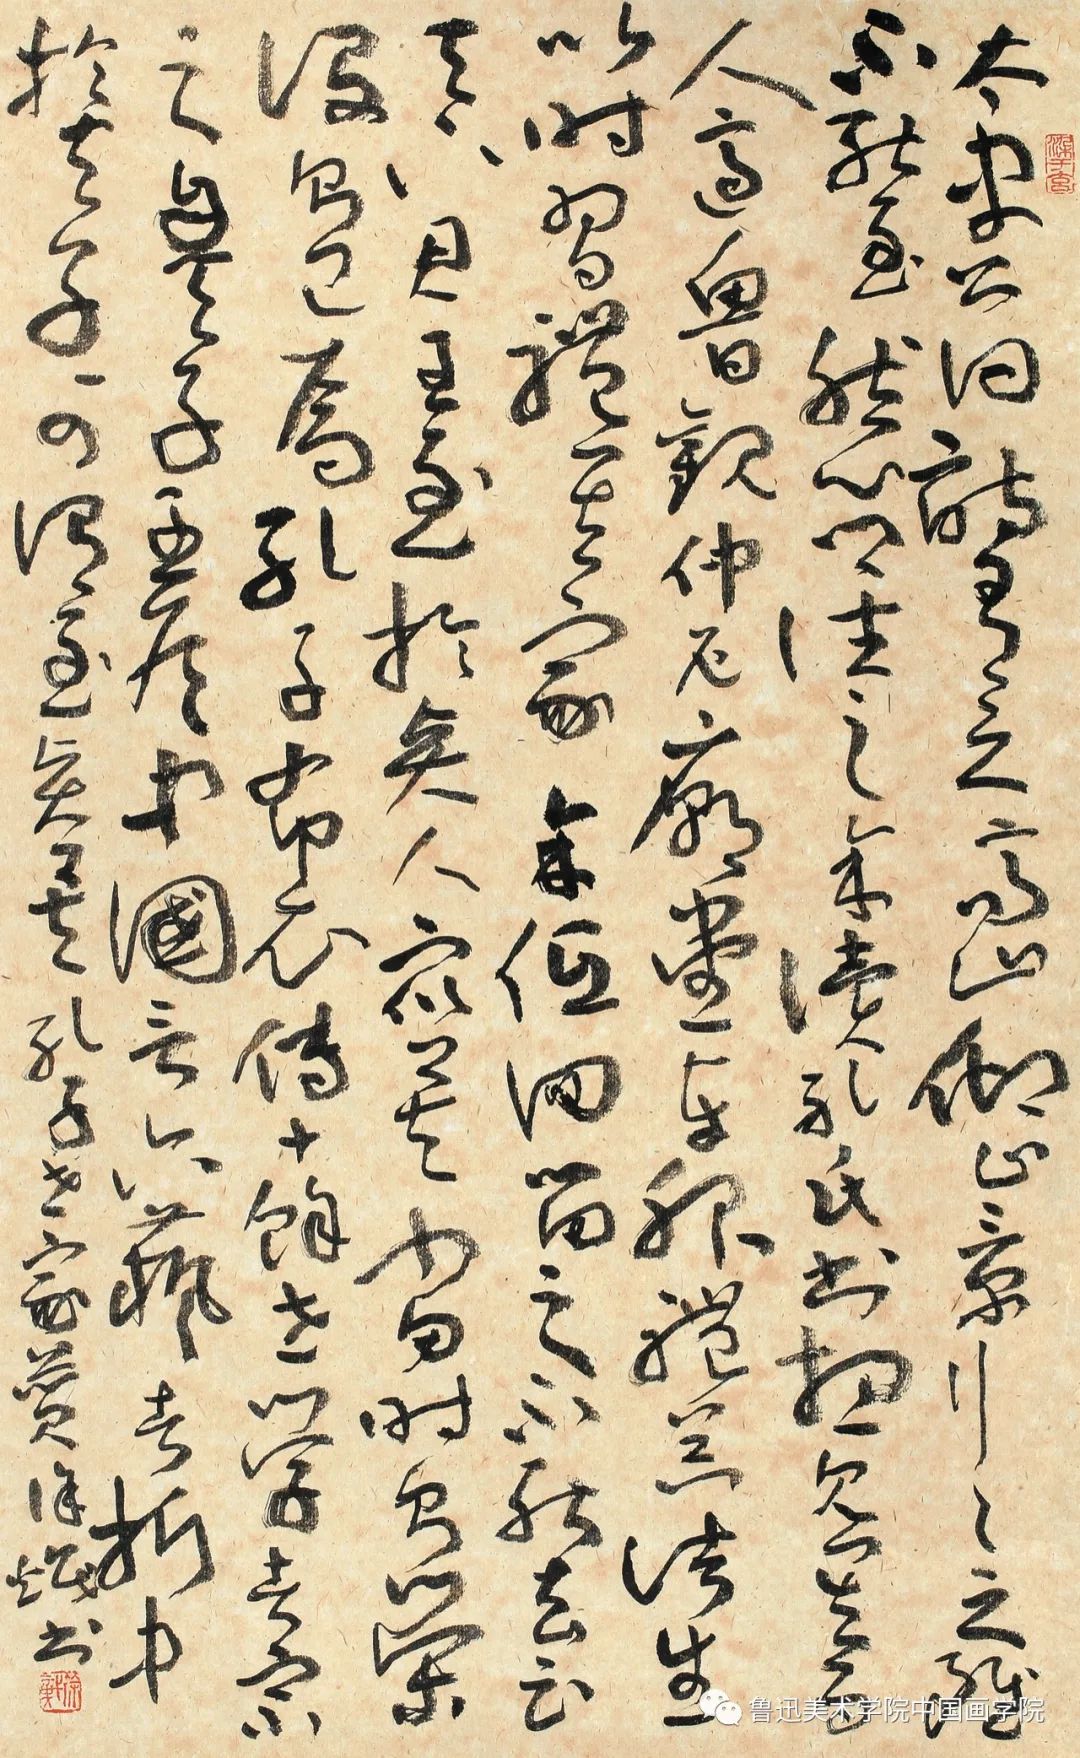 太史公曰詩有之高山仰止景行〻止雖
不能至然心鄉往之余讀孔氏書想見其為
人適魯觀仲尼廟堂車服禮器諸生
以時習禮其家余低回留之不能去云
天下君王至於賢人眾矣當時則榮
沒則已焉孔子布衣傳十餘世學者宗
之自天子王侯中國言六藝者折中
於夫子可謂至聖矣 孔子世家贊 徐書
鲁迅美术学院中国画学院